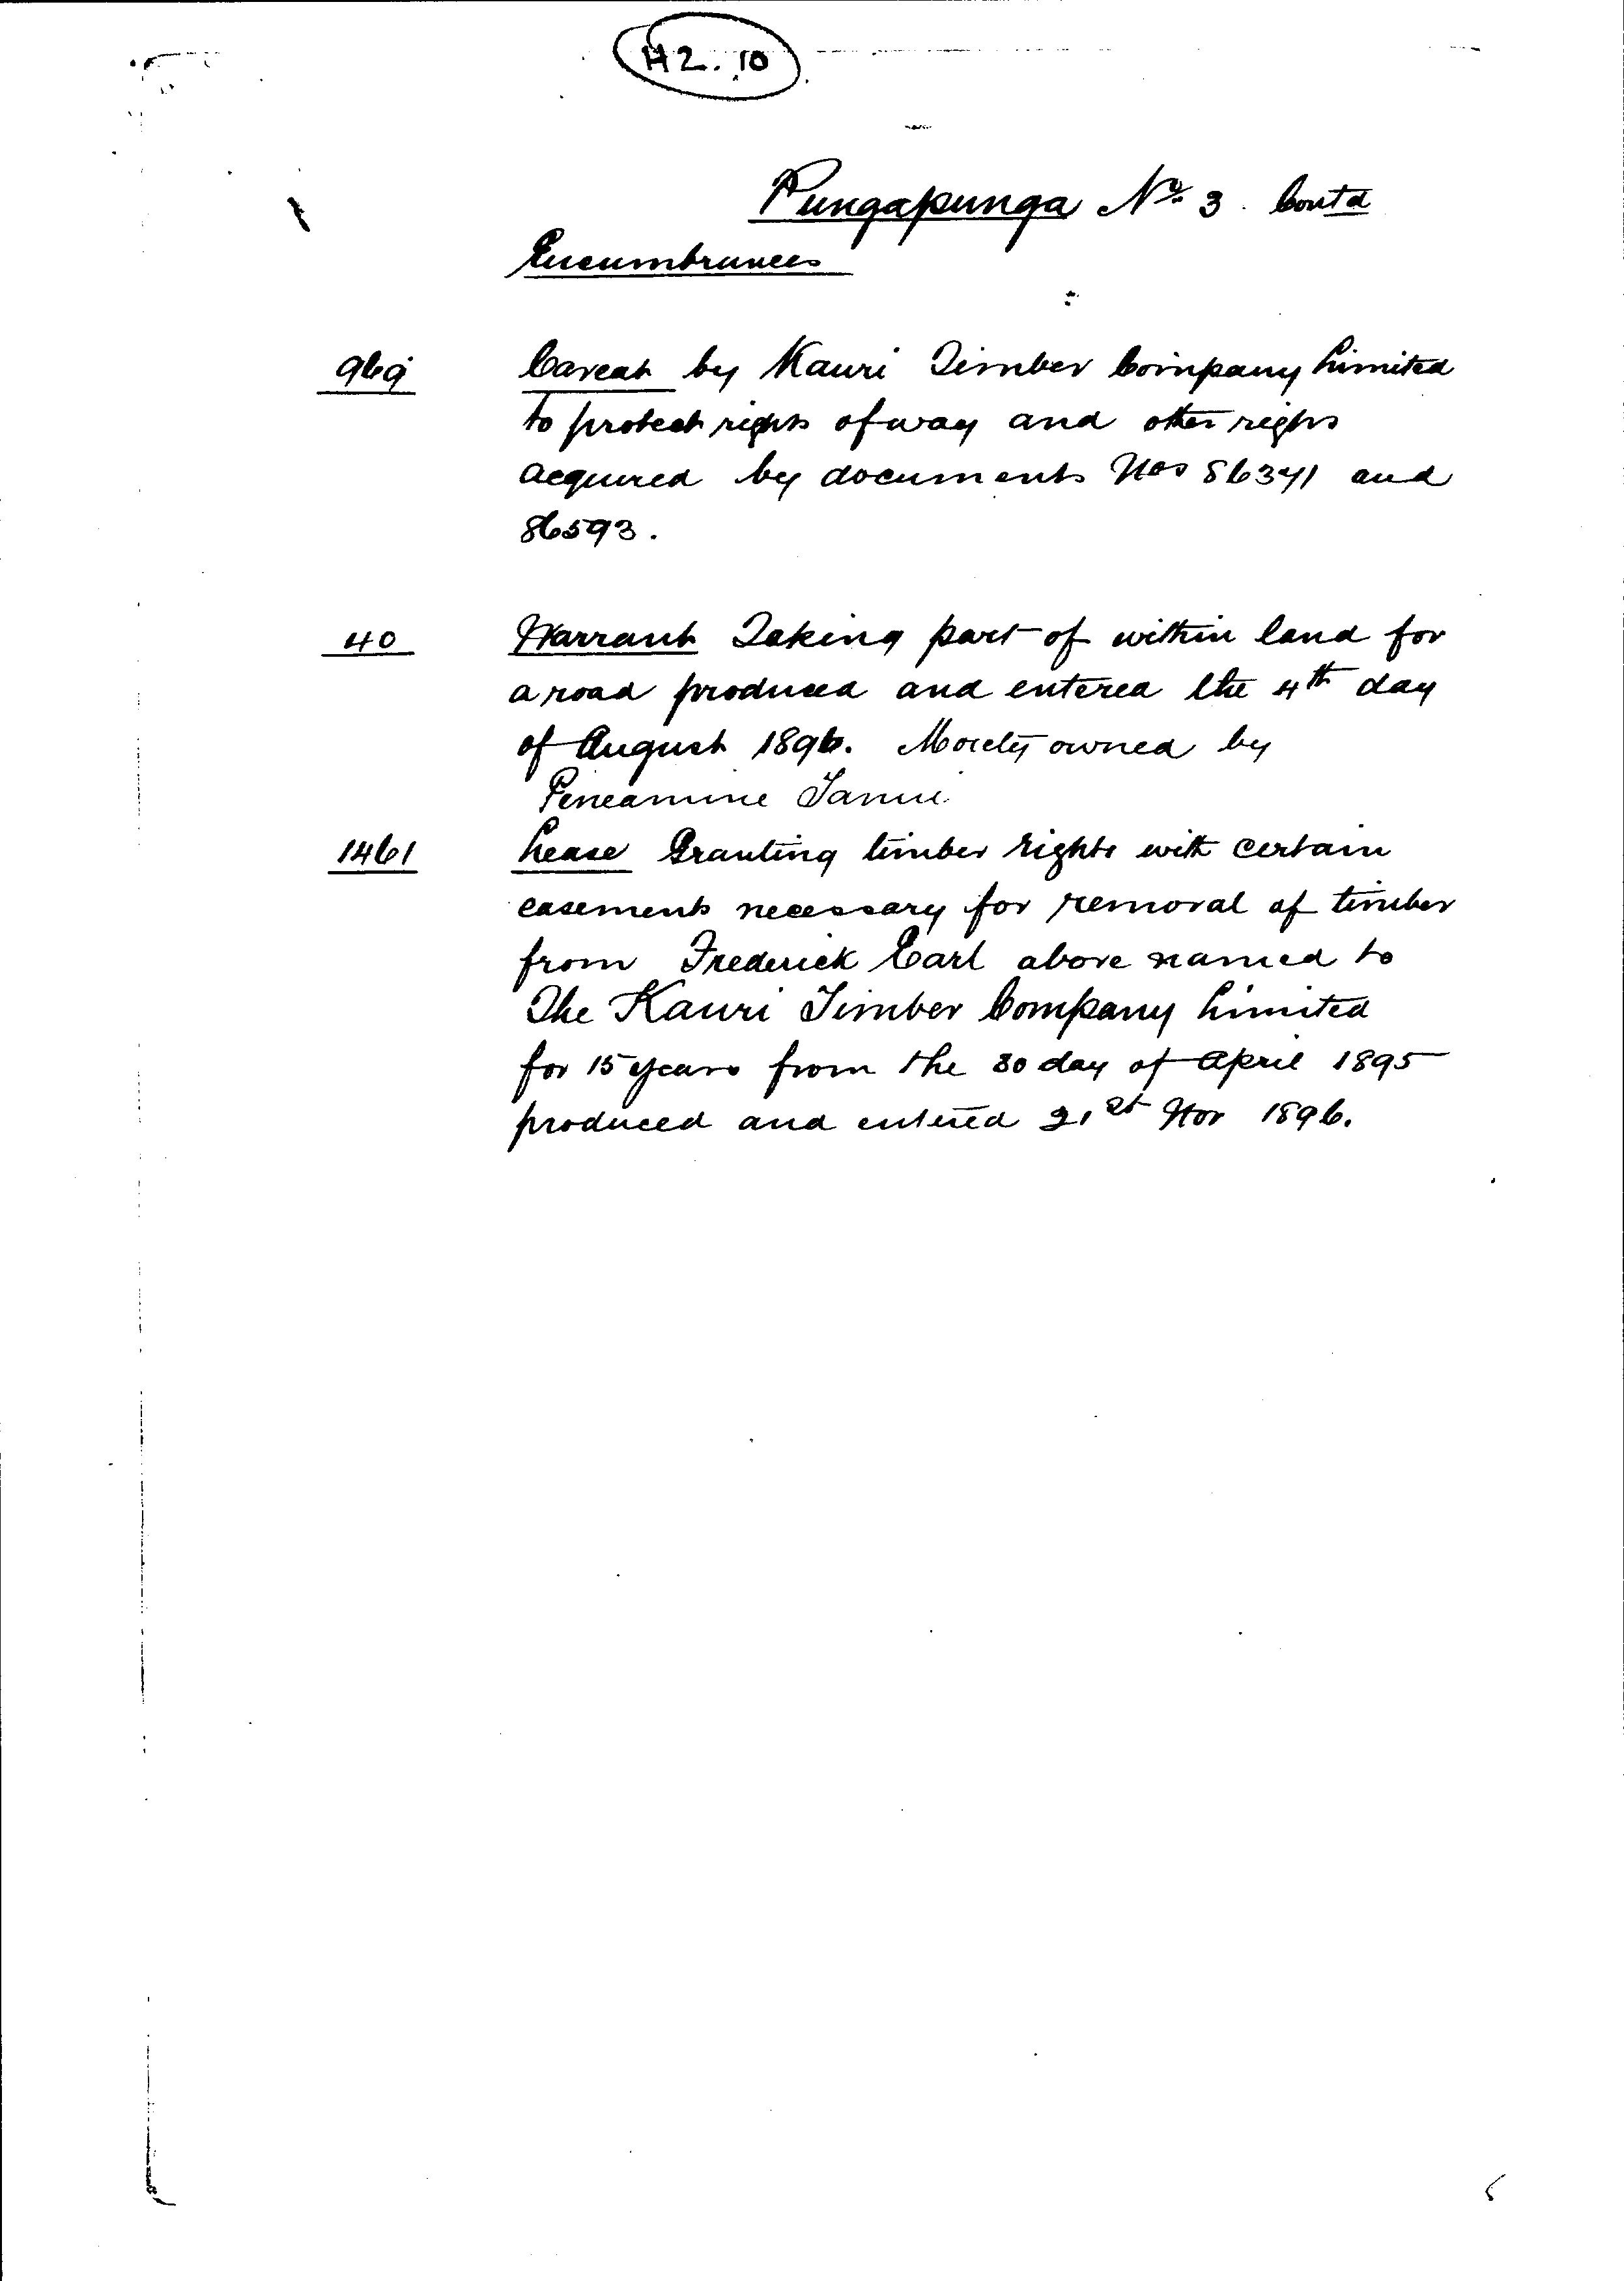 H2.10
Pungapunga No. 3. Contd
Encumbrances
969 Caveat by Kauri Timber Company Limited
to protect rights of way and other rights
acquired by documents Nos 86341 and
86593.
40 Warrant Taking part of within land for
a road produced and entered the 4th day
of August 1896. Moiety owned by
Peneamine Tanui
1461 Lease Granting timber rights with certain
easements necessary for removal of timber
from Frederick Earl above named to
The Kauri Timber Company Limited
for 15 years from the 30 day of April 1895
produced and entered 21st Nov 1896.